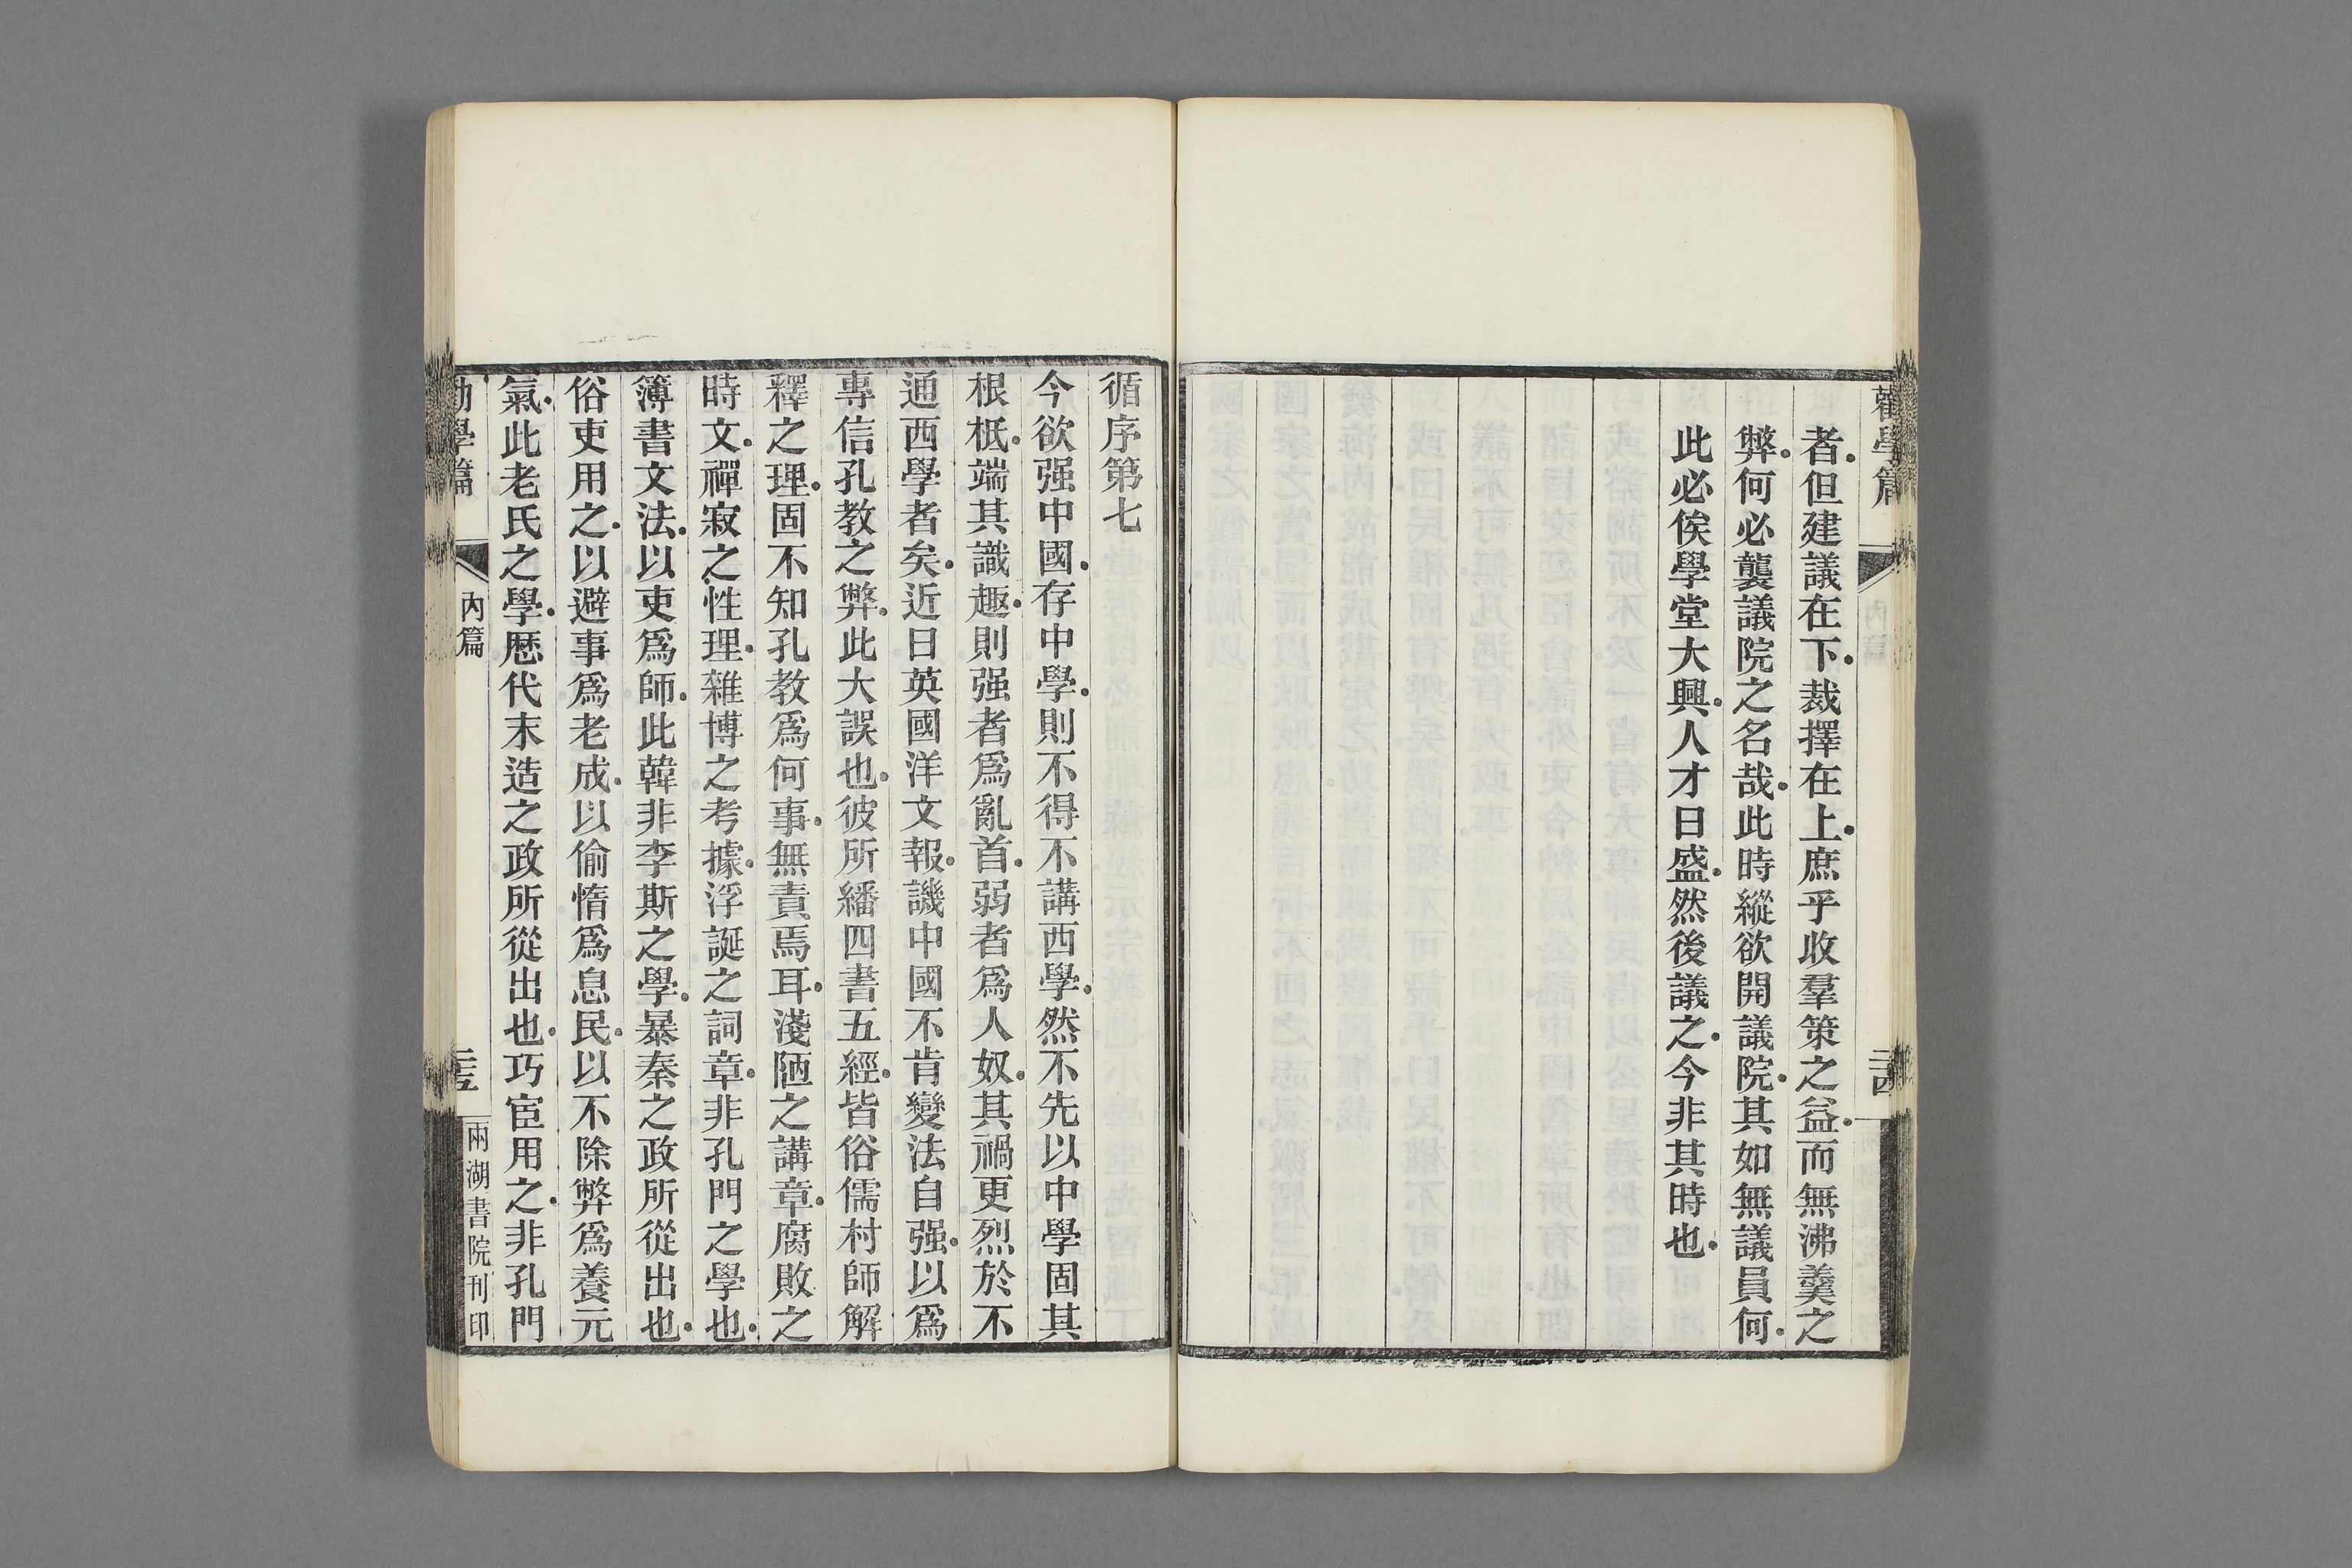 勸學篇
二十四
者但建議在下裁擇在上庶乎收羣策之益而無沸羹之
弊何必襲議院之名哉此時縱欲開議院其如無議員何
此必俟學堂大興人才日盛然後議之今非其時也
循序第七
今欲强中國存中學則不得不講西學然不先以中學固其
根柢端其識趣則强者爲亂首弱者爲人奴其禍更烈於不
通西學者矣近日英國洋文報譏中國不肯變法自强以爲
專信孔教之弊此大誤也彼所繙四書五經皆俗儒村師解
釋之理固不知孔教爲何事無責焉耳淺陋之講章腐敗之
時文禪寂之性理雜博之考據浮誕之詞章非孔門之學也
簿書文法以吏爲師此韓非李斯之學暴秦之政所從出也
俗吏用之以避事爲老成以偷惰爲息民以不除弊爲養元
氣此老氏之學歷代末造之政所從出也巧宦用之非孔門
學篇
內篇
兩湖書院刊印